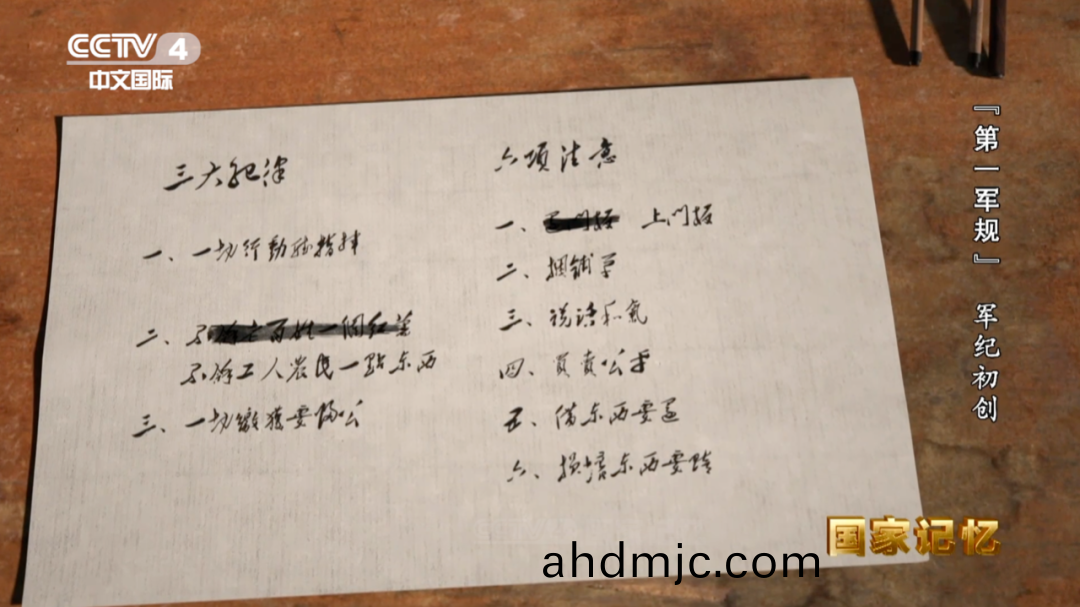 CCTV 4
中文国际
三大纪律
一、一切行动听指挥
二、不拿老百姓一個红薯
不拿工人农民一點东西
三、一切缴獲要归公
六项注意
一、上门板
二、捆铺草
三、说话和氣
四、買賣公平
五、借东西要还
六、损坏东西要赔
『第一军规』 军纪初创
国家记忆
ahdmjc.com